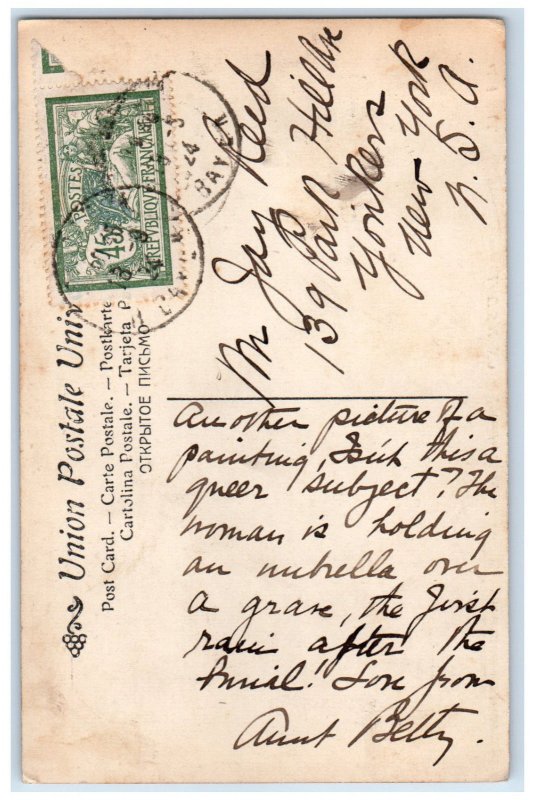 Union Postale Univ
Post Card. — Carte Postale. — Postkarte
Cartolina Postale. — Tarjeta P
ОТКРЫТОЕ ПИСЬМО
POSTES
45c
REPUBLIQUE FRANCAISE
24
Mr Jay Reed
139 Park Hill Ave
Yonkers
New York
U.S.A.
Another picture of a
painting, Isn't this a
queer subject? The
woman is holding
an umbrella over
a grave, the first
rain after the
burial! Love from
Aunt Betty.